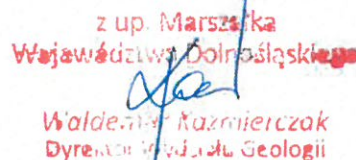 z up. Marszałka
Województwa Dolnośląskiego
Waldemar Kaźmierczak
Dyrektor Wydziału Geologii